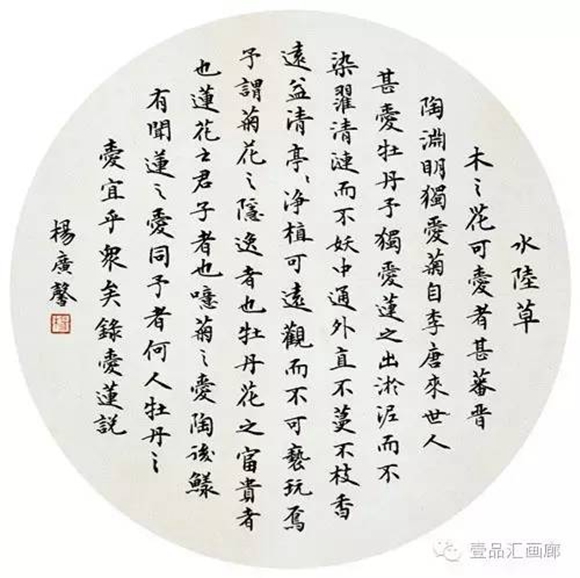 水陸草
木〻花可愛者甚蕃晋
陶淵明獨愛菊自李唐來世人
甚愛牡丹予獨愛蓮之出淤泥而不
染濯清漣而不妖中通外直不蔓不枝香
遠益清亭〻净植可遠觀而不可褻玩焉
予謂菊花〻隱逸者也牡丹花之富貴者
也蓮花〻君子者也噫菊〻愛陶後鱻
有聞蓮〻愛同予者何人牡丹〻
愛宜乎衆矣錄愛蓮説
楊廣馨
壹品汇画廊